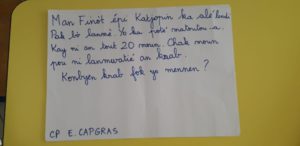 Man Finòt épi Katjopin ka alé bodi
Pak bò lanmè. Yo ka poté matoutou-a
Kay ni an tout 20 moun. Chak moun
pou ni lanmwatié an krab.
Konbyen krab fok yo mennen ?
CP E. CAPGRAS